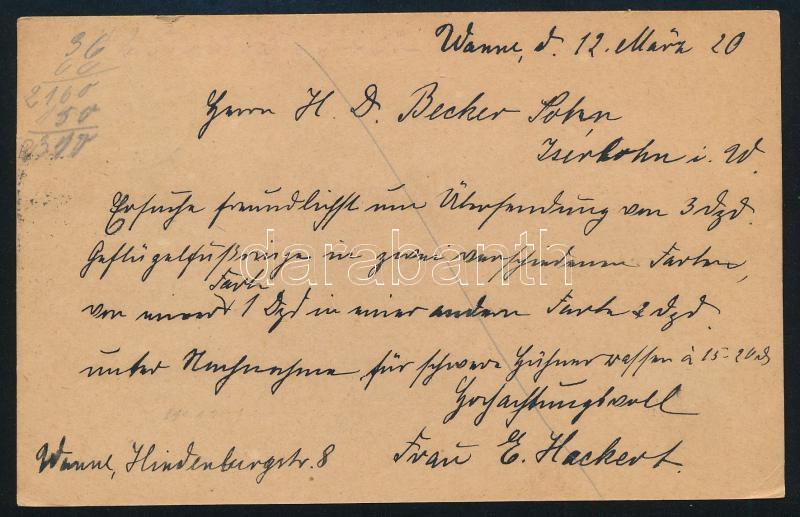 Wanne, d. 12. März 20
36
60
2160
150
Herrn H. D. Becker Sohn,
Iserlohn i. W.
Ersuche freundlichst um Übersendung von 3 Dzd.
Geflügelfußringe in zwei verschiedenen Farben,
Farbe
von einer 1 Dzd in einer andern Farbe 2 Dzd.
unter Nachnahme für schwere Hühnerrassen à 15-20
Hochachtungsvoll
Frau E. Hackert.
Wanne, Hindenburgstr. 8
darabanth